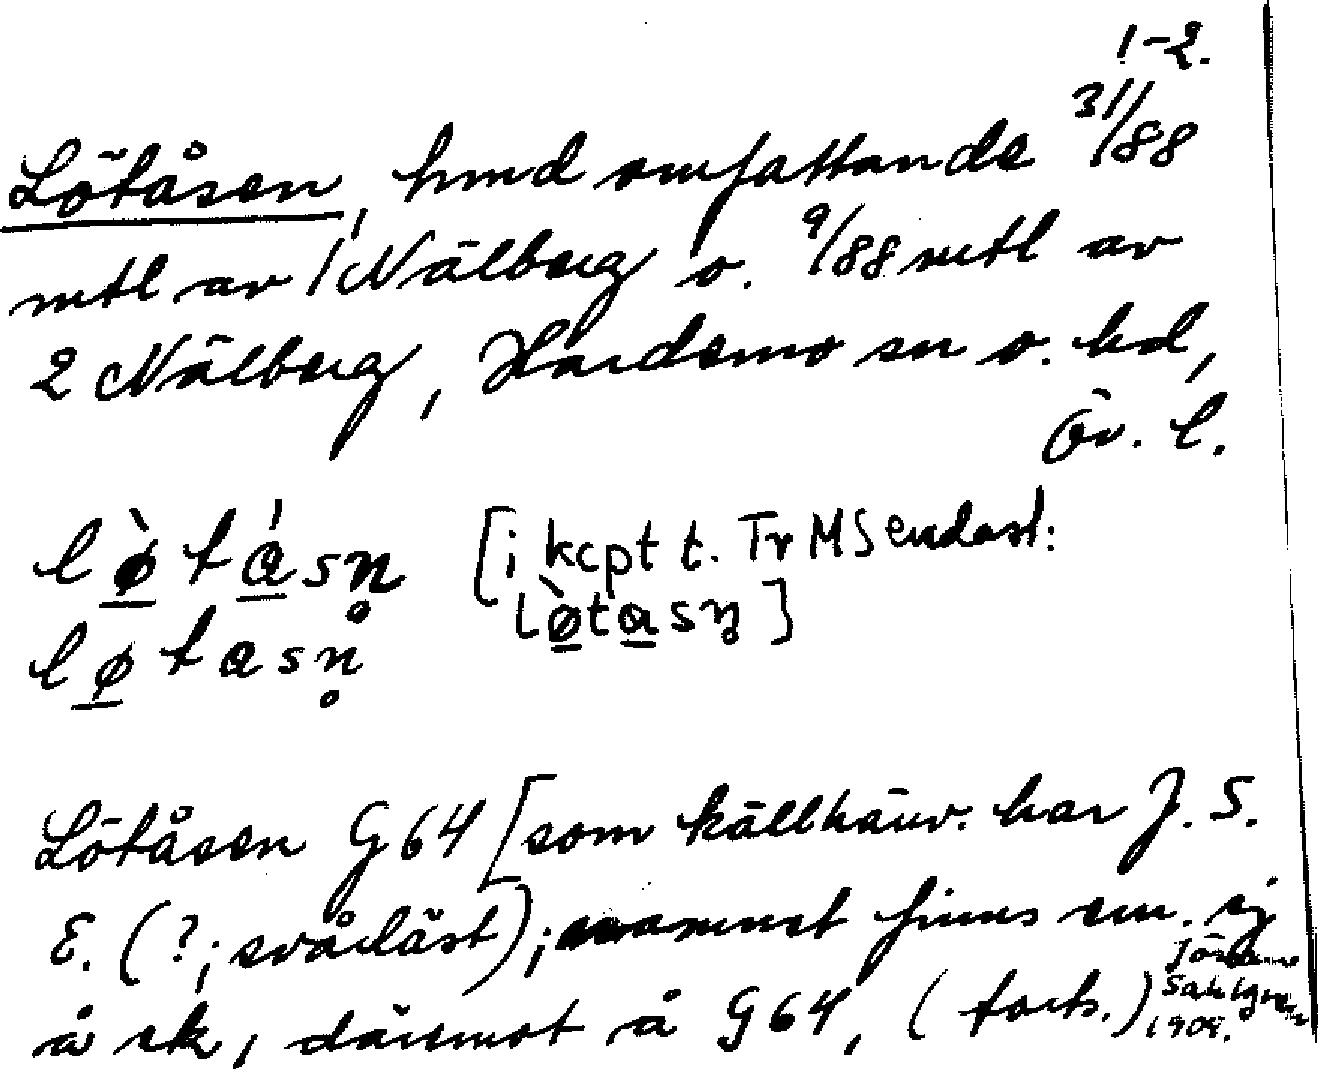 1-2.
Lötåsen, hmd omfattande 31/88
mtl av 1 Nälberg o. 9/88 mtl av
2 Nälberg, Hardemo sn o. hd,
Ör. l.
lø̀tásn̥ [i kcpt t. Tr MS endast:
lø̀tasn̥]
løtasn̥
Lötåsen G64 [som källhänv. har J. S.
E. (?; svårläst); namnet finns em. ej
å ek, däremot å G64, (forts.)
Jöran
Sahlgren
1908.